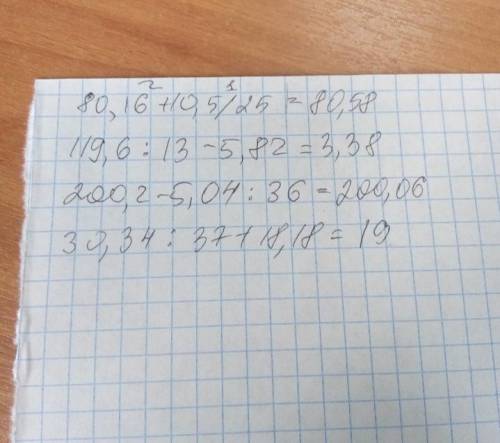 2 1
80,16+10,5/25=80,58
119,6:13-5,82=3,38
200,2-5,04:36=200,06
30,34:37+18,18=19